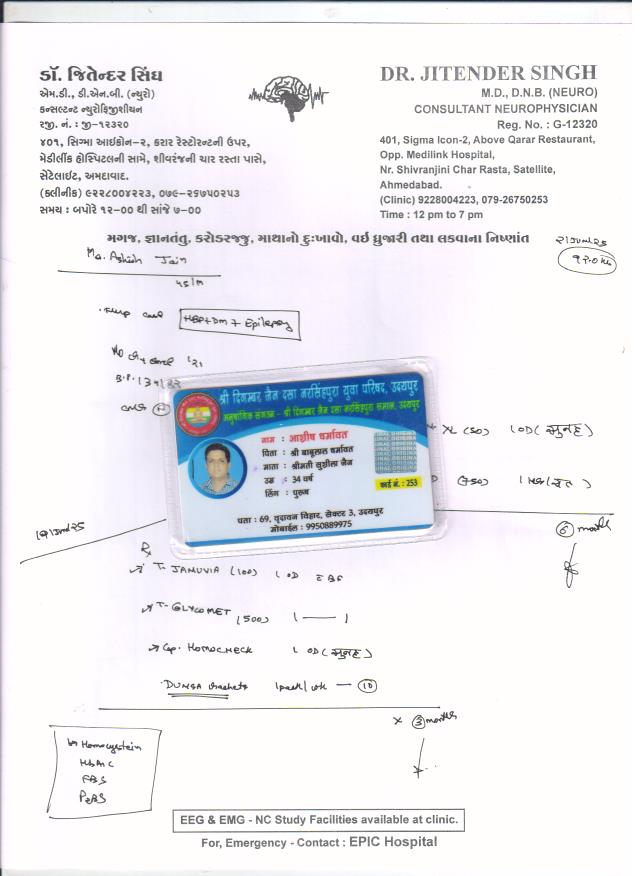 ડૉ. જિતેન્દર સિંઘ
એમ.ડી., ડી.એન.બી. (ન્યુરો)
કન્સલ્ટન્ટ ન્યુરોફિઝીશીયન
રજી. નં. : જી-૧૨૩૨૦
૪૦૧, સિગ્મા આઇકોન-૨, કરાર રેસ્ટોરન્ટની ઉપર,
મેડીલીંક હોસ્પિટલની સામે, શીવરંજની ચાર રસ્તા પાસે,
સેટેલાઇટ, અમદાવાદ.
(ક્લીનીક) ૯૨૨૮૦૦૪૨૨૩, ૦૭૯-૨૬૭૫૦૨૫૩
સમય : બપોરે ૧૨-૦૦ થી સાંજે ૭-૦૦
DR. JITENDER SINGH
M.D., D.N.B. (NEURO)
CONSULTANT NEUROPHYSICIAN
Reg. No. : G-12320
401, Sigma Icon-2, Above Qarar Restaurant,
Opp. Medilink Hospital,
Nr. Shivranjini Char Rasta, Satellite,
Ahmedabad.
(Clinic) 9228004223, 079-26750253
Time : 12 pm to 7 pm
મગજ, જ્ઞાનતંતુ, કરોડરજ્જુ, માથાનો દુઃખાવો, વઈ ધ્રુજારી તથા લકવાના નિષ્ણાંત
Jain
45/M
+ DM + Epilepsy
श्री दिगम्बर जैन दसा नरसिंहपुरा युवा परिषद, उदयपुर
अनुषांगिक संगठन - श्री दिगम्बर जैन दसा नरसिंहपुरा समाज, उदयपुर
नाम : आशीष धर्मावत
पिता : श्री बाबुलाल धर्मावत
माता : श्रीमती सुशीला जैन
उम्र : 34 वर्ष
लिंग : पुरुष
कार्ड नं. : 253
पता : 69, वृदावन विहार, सेक्टर 3, उदयपुर
मोबाईल : 9950889975
XL (50) 1 OD (सुबह)
(750)
6 months
Rx
T- JANUVIA (100) 1 OD BBF
T- GLYCOMET (500) 1 — 1
Cap. HOMOCHECK 1 OD (सुबह)
1 pack/wk — 10
x 3 months
Homocystein
HbA1C
FBS
PPBS
EEG & EMG - NC Study Facilities available at clinic.
For, Emergency - Contact : EPIC Hospital